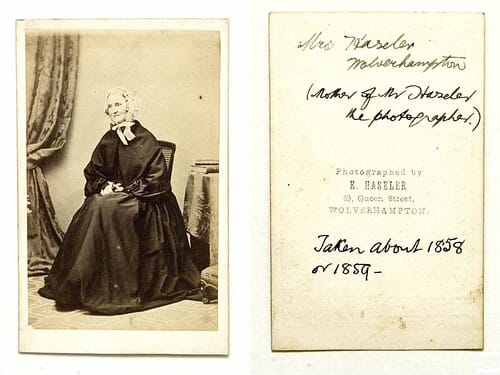 Mrs Haseler
Wolverhampton
(Mother of Mr Haseler
the photographer.)
Photographed by
E. HASELER
49, Queen Street,
WOLVERHAMPTON.
Taken about 1858
or 1859-